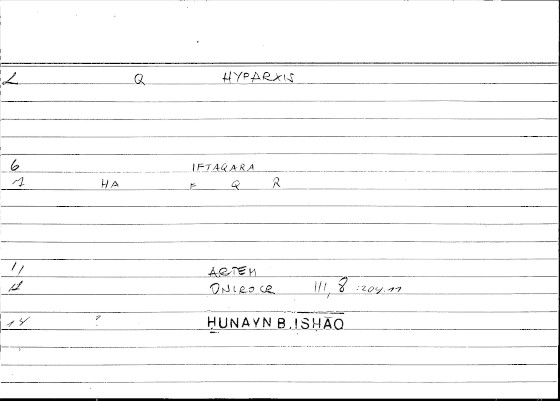 2 Q HYPARXIS
6 IFTAQARA
7 HA F Q R
11 ARTEM
12 ONIROCR III, 8 :204.11
14 ? ḤUNAYN B.ISḤĀQ